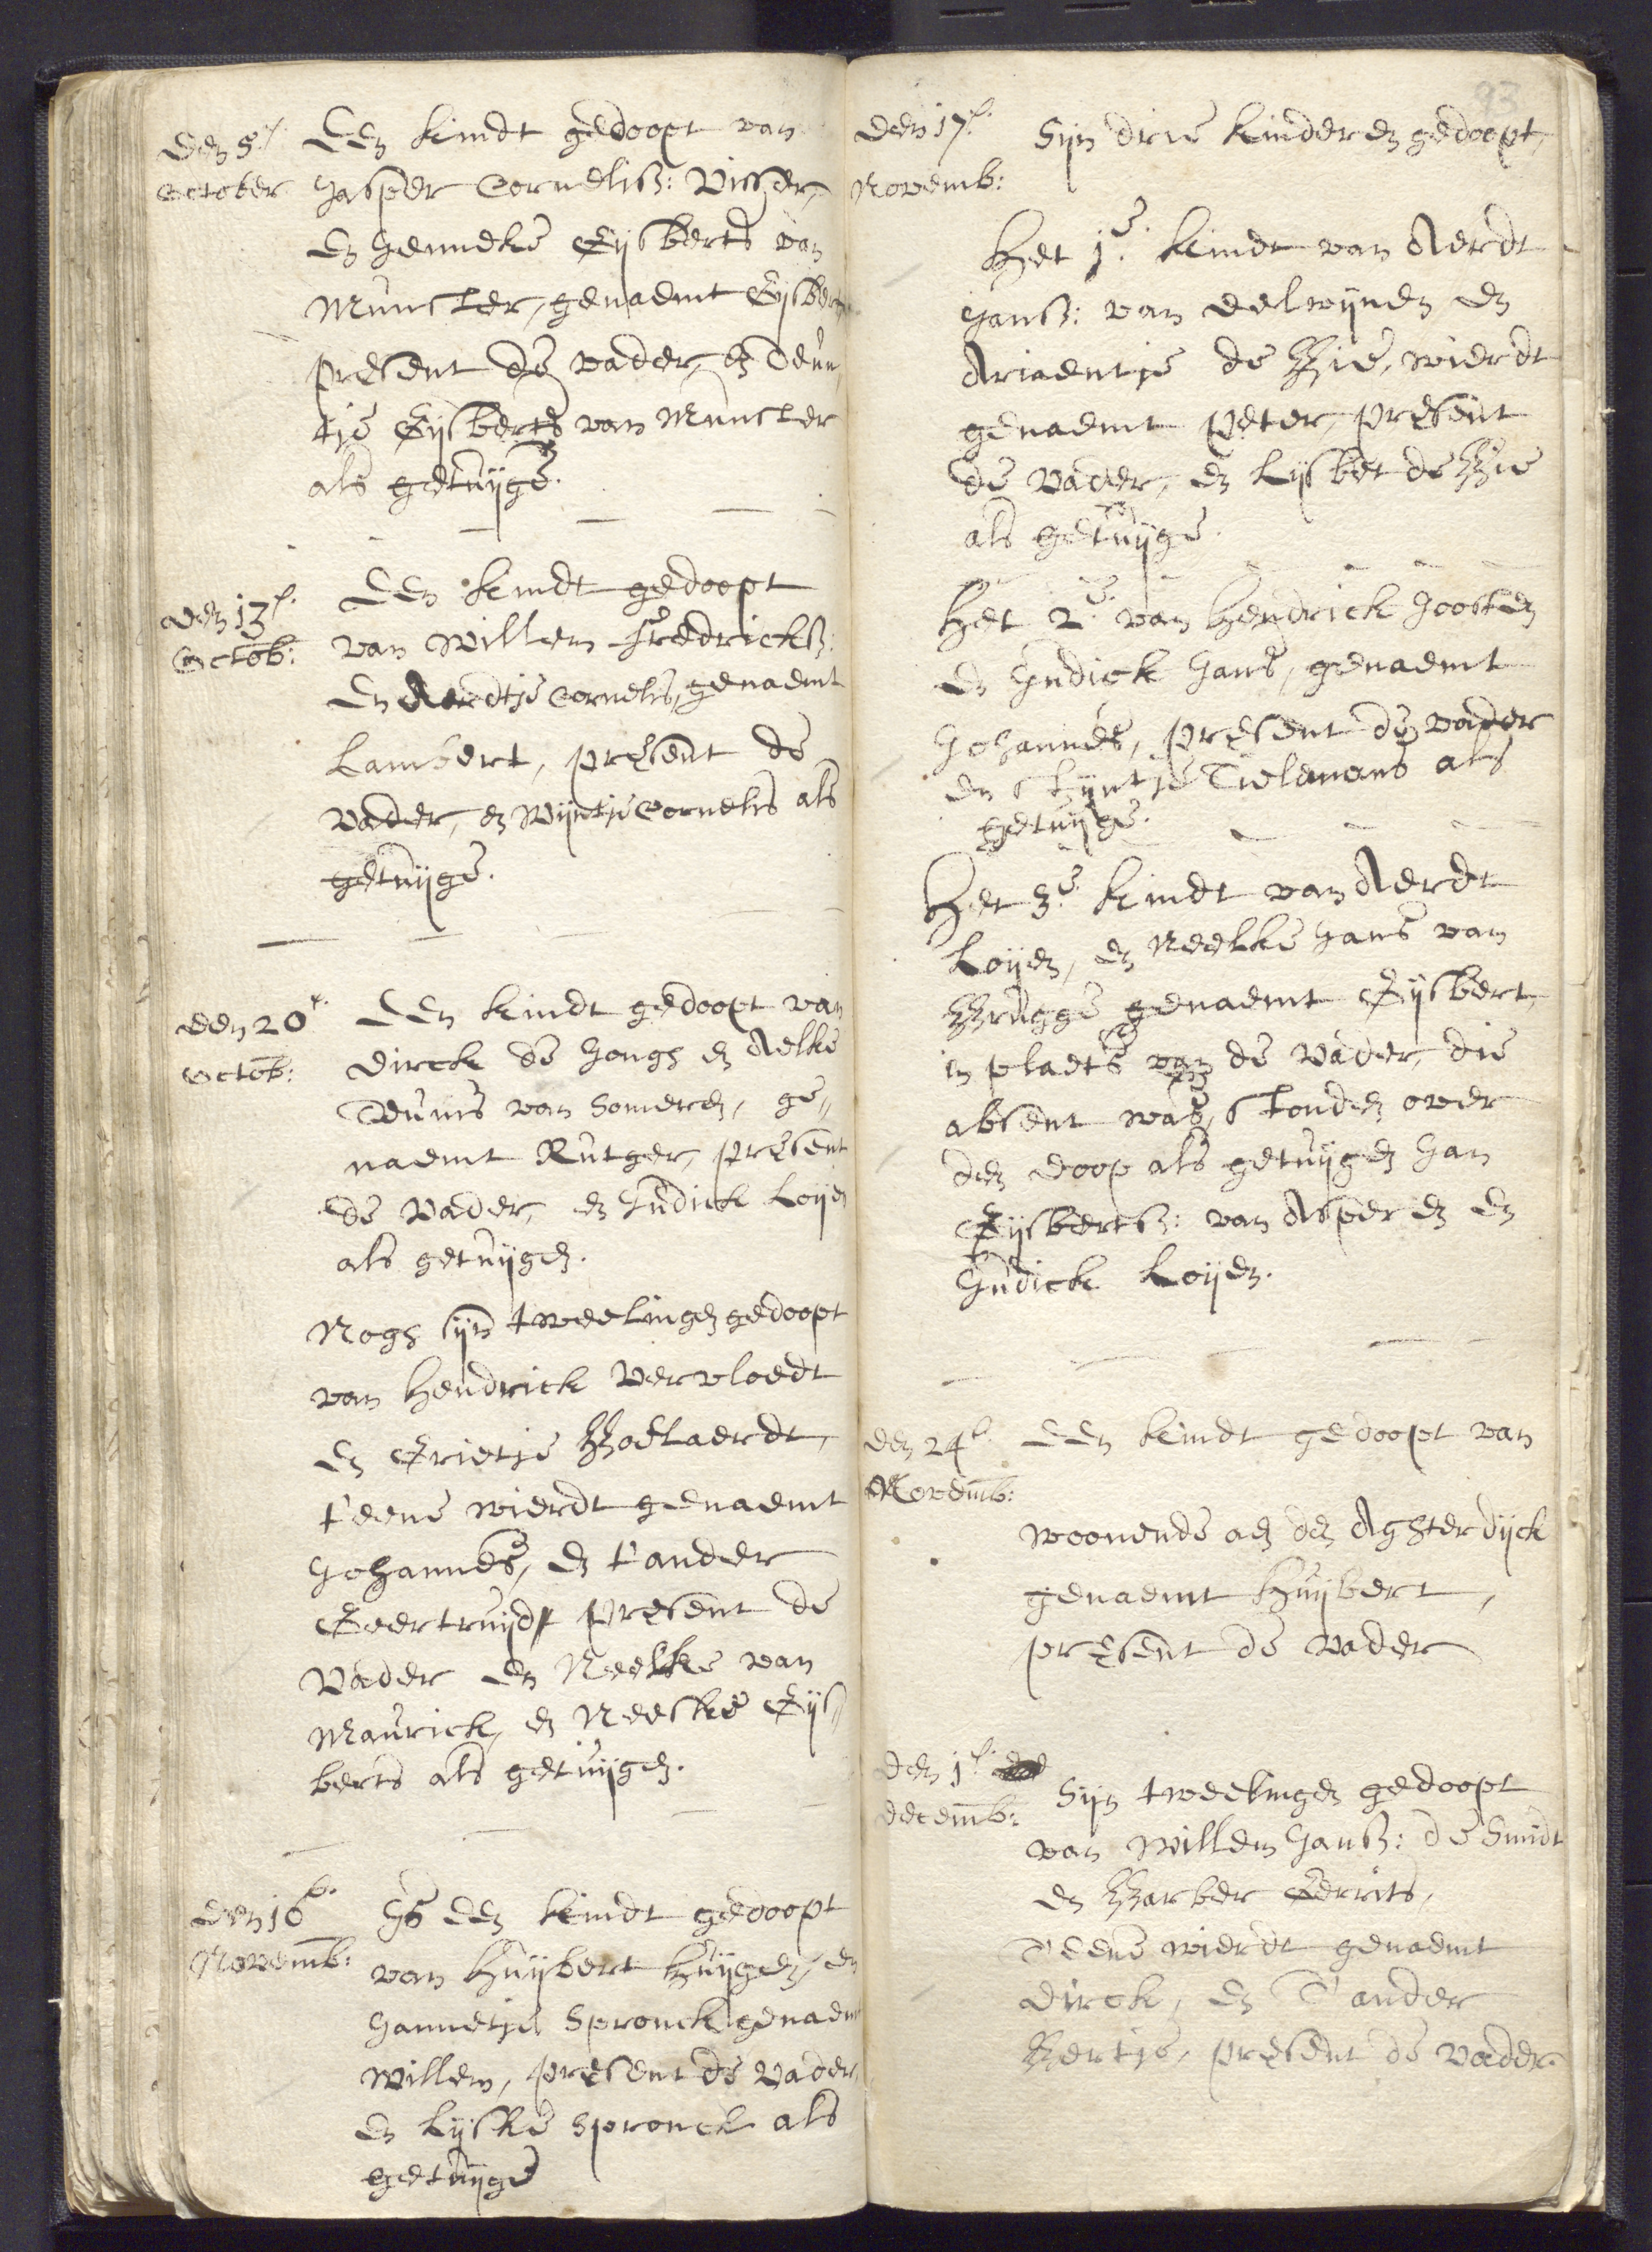 den 5e.
October
Een kindt gedoopt van
Jasper Cornelisz: Visser,
en Jenneke Gijsberts van
Munster, genaemt Gijsbert,
present de vader, en Teun,
tje Gijsberts van Munster
als getuijge.
den 13e.
Octob:
Een kindt gedoopt
van Willem Fredricksz:
en Aerdtje Cornelis, genaemt
Lambert, present de
vader, en Wijntje Cornelis als
getuijge.
den 20e.
Octob:
Een kindt gedoopt van
Dirck de Jongh en Aelke
Teunis van Someren, ge„
naemt Rutger, present
de vader, en Judick Loijen
als getuijgen.
Nogh sijn tweelingen gedoopt
van Hendrick Vervloedt
en Grietje Boelaerdt,
t'eene wierdt genaemt
Johannes, en t'ander
Geertruijdt present de
Vader en Neelke van
Maurick, en Neeske Gijs„
berts als getuijgen.
den 16e.
Novemb:
Is een kindt gedoopt
van Huijbert Huijgen, en
Jannetje Spronck genaemt
Willem, present de vader,
en Lijske Spronck als
getuijge
93
den 17e.
Novemb:
Sijn drie kinderen gedoopt,
Het 1e. kindt van Aerdt
Jansz: van Delwijnen en
Ariaentje de Bie, wierdt
genaemt Peter, present
de vader, en Lijsbet de Bie
als getuijge.
Het 2e. van Hendrick Joosten
en Judick Jans, genaemt
Johannes, present de vader
en Stijntje Tielemans als
getuijge.
Het 3e. kindt van Aerdt
Loijen, en Neelke Jans van
Brugge genaemt Gijsbert,
in plaets van de vader, die
absent was, stonden over
den doop als getuijgen Jan
Gijsbertsz: van Asperen en
Judick Loijen.
den 24e.
Novemb:
Een kindt gedoopt van
woonende aen den Aghterdijck
genaemt Huijbert,
present de vader
den 1e.
decemb:
Sijn tweelingen gedoopt
van Willem Jansz: de Smidt
en Barber Gerrits,
T'eene wierdt genaemt
Dirck, en T'ander
Bertje, present de vader.